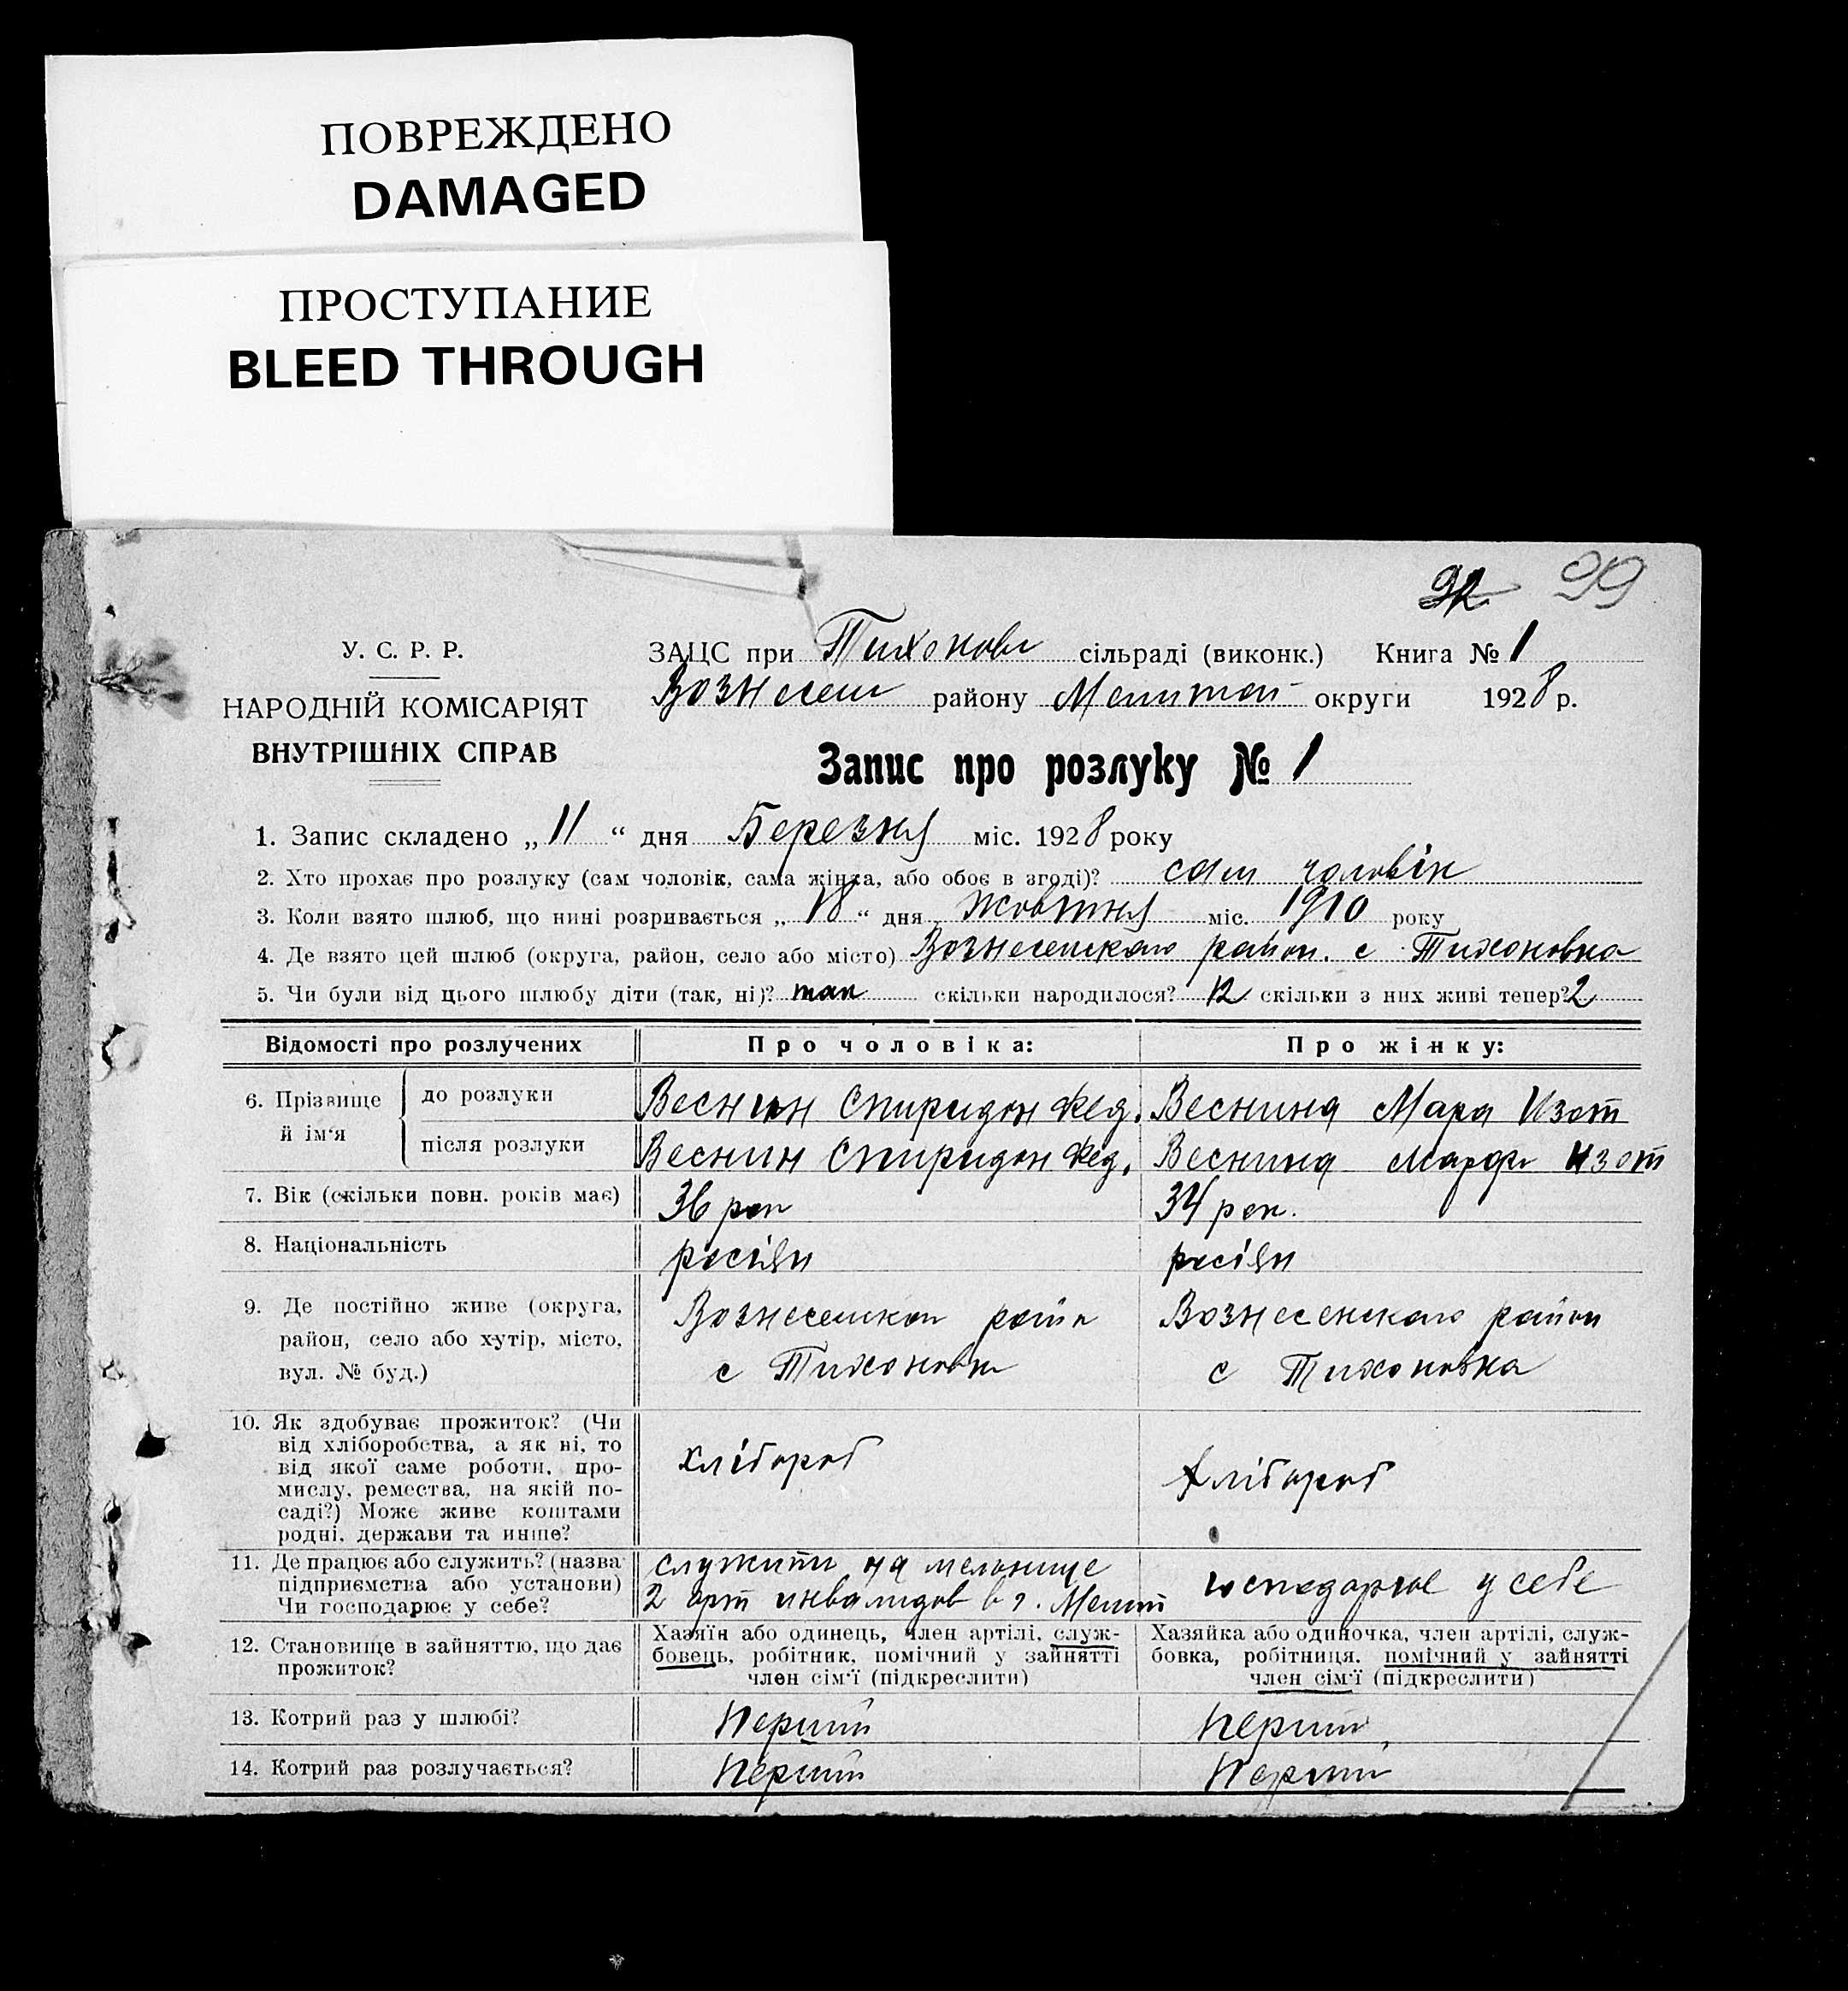 ПОВРЕЖДЕНО
DAMAGED
ПРОСТУПАНИЕ
BLEED THROUGH
99
У. С. Р. Р.
НАРОДНІЙ КОМІСАРІЯТ
ВНУТРІШНІХ СПРАВ
ЗАЦС при Тихонов сільраді (виконк.) Книга № 1
Вознесен району Мелитоп округи 1928 р.
Запис про розлуку № 1
1. Запис складено „ 11 “ дня Березня міс. 1928 року
2. Хто прохає про розлуку (сам чоловік, сама жінка, або обоє в згоді)? сам чоловік
3. Коли взято шлюб, що нині розривається „ 18 “ дня Жовтня міс. 1910 року
4. Де взято цей шлюб (округа, район, село або місто) Вознесенского район. с Тихоновка
5. Чи були від цього шлюбу діти (так, ні)? так скільки народилося? 12 скільки з них живі тепер? 2
Відомості про розлучених
Про чоловіка:
Про жінку:
6. Прізвище й ім‘я
до розлуки
Веснин Спиридон Фед.
Веснина Мара Изот
після розлуки
Веснин Спиридон Фед.
Веснина Марфа Изот
7. Вік (скільки повн. років має)
36 рок
34 рок.
8. Національність
росіян
росіян
9. Де постійно живе (округа,
район, село або хутір, місто,
вул. № буд.)
Вознесенкон район
с Тихоновка
Вознесенского район
с Тихоновка
10. Як здобуває прожиток? (Чи
від хліборобства, а як ні, то
від якої саме роботи, про-
мислу, ремества, на якій по-
саді?) Може живе коштами
родні, держави та инше?
хлібороб
хлібороб
11. Де працює або служить? (назва
підприємства або установи)
Чи господарює у себе?
служити на мельнице
2 арт инвалидов в г. Мелит
господарює у себе
12. Становище в зайняттю, що дає
прожиток?
Хазяїн або одинець, член артілі, служ-
бовець, робітник, помічний у зайнятті
член сім‘ї (підкреслити)
Хазяйка або одиночка, член артілі, служ-
бовка, робітниця, помічний у зайнятті
член сім‘ї (підкреслити)
13. Котрий раз у шлюбі?
Перший
перший
14. Котрий раз розлучається?
перший
Перший